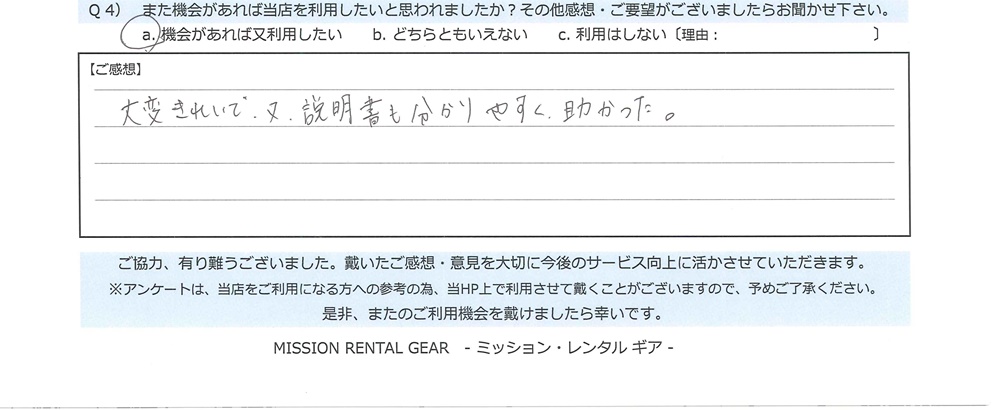 Q4) また機会があれば当店を利用したいと思われましたか?その他感想・ご要望がございましたらお聞かせ下さい。
a. 機会があれば又利用したい b. どちらともいえない c. 利用はしない〔理由： 〕
【ご感想】
大変きれいで、又、説明書も分かりやすく、助かった。
ご協力、有り難うございました。戴いたご感想・意見を大切に今後のサービス向上に活かさせていただきます。
※アンケートは、当店をご利用になる方への参考の為、当HP上で利用させて戴くことがございますので、予めご了承ください。
是非、またのご利用機会を戴けましたら幸いです。
MISSION RENTAL GEAR - ミッション・レンタル ギア -